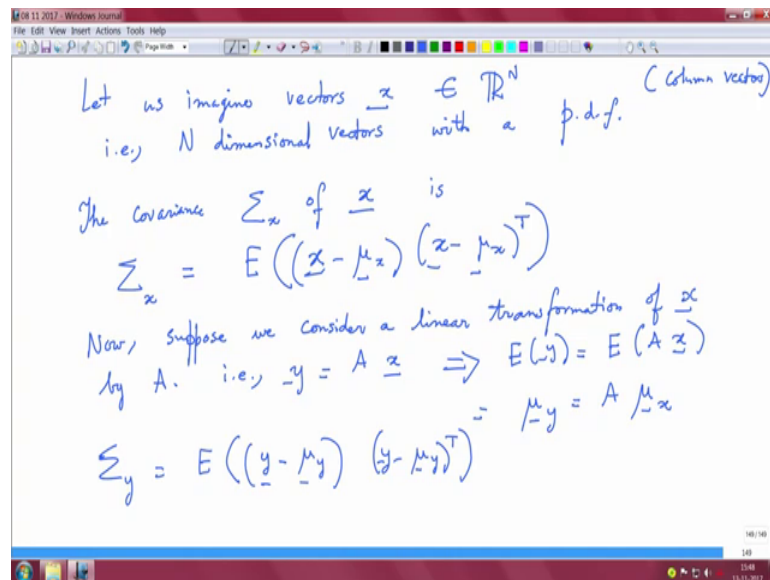 08 11 2017 - Windows Journal
File Edit View Insert Actions Tools Help
Page Width
Let us imagine vectors x ∈ ℝ^N (column vector)
i.e., N dimensional vectors with a p.d.f.
The covariance Σ_x of x is
Σ_x = E((x - μ_x) (x - μ_x)^T)
Now, suppose we consider a linear transformation of x
by A. i.e., y = A x ⇒ E(y) = E(A x)
= μ_y = A μ_x
Σ_y = E((y - μ_y) (y - μ_y)^T)
149/149
149
15:48
13-11-2017